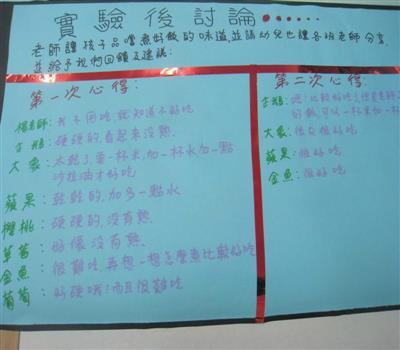 實驗後討論‧‧‧‧‧‧
老師讓孩子品嚐煮好飯的味道,並請幼兒也讓各班老師分享,
並給予我們回饋及建議:
第一次心得:
楊老師:我不用吃就知道不好吃
吉祥:硬硬的,看起來沒熟.
大象:太乾了要一杯米,加一杯水加一點
沙拉油才好吃
蘋果:乾乾的,加多一點水
櫻桃:硬硬的,沒有熟.
草莓:好像沒有熟.
金魚:很難吃,再想一想怎麼煮比較好吃
葡萄:好硬哦!而且很難吃
第二次心得:
大象:很好吃
蘋果:很好吃
金魚:很好吃